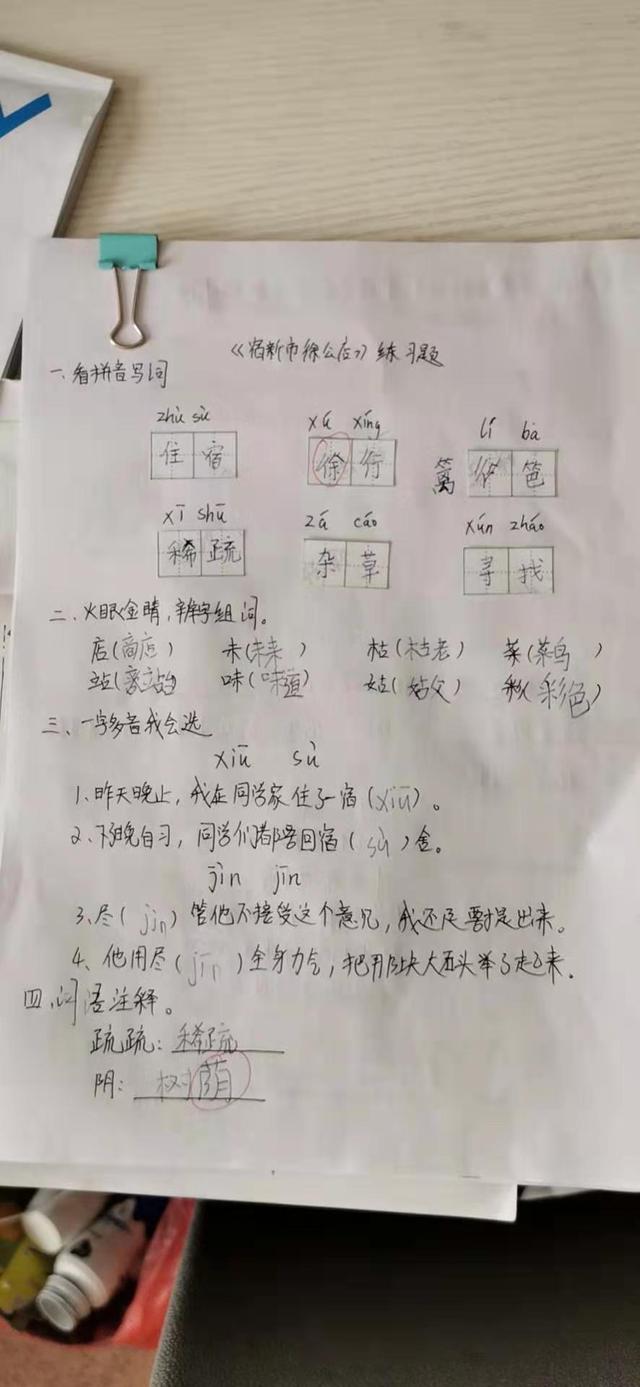 《宿新市徐公店》练习题
一、看拼音写词
zhù sù xú xíng lí bā
住宿 徐行 篱 笆
xī shū zá cáo xún zháo
稀疏 杂草 寻找
二、火眼金睛,辨字组词。
店(商店) 未(未来) 枯(枯老) 菜(菜鸟)
站( ) 味(味道) 姑(姑父) 彩(彩色)
三、一字多音我会选
xiǔ sù
1、昨天晚上,我在同学家住了一宿(xiū)。
2、下晚自习,同学们都回宿(sù)舍。
jìn jīn
3、尽(jìn)管他不接受这个意见,我还是要提出来。
4、他用尽(jīn)全身力气,把那块大石头举了起来。
四、词语注释。
疏疏:稀疏
阴:树荫